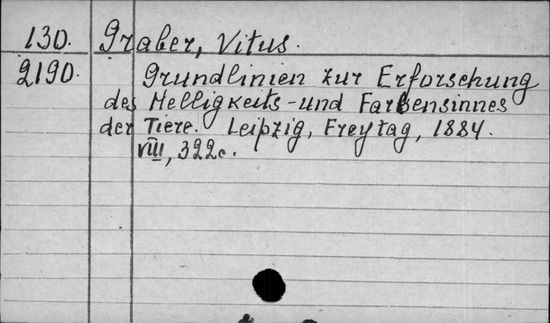 130. Graber, Vitus.
2190. Grundlinien zur Erforschung
des Helligkeits-und Farbensinnes
der Tiere. Leipzig, Freytag, 1884.
VIII, 322c.